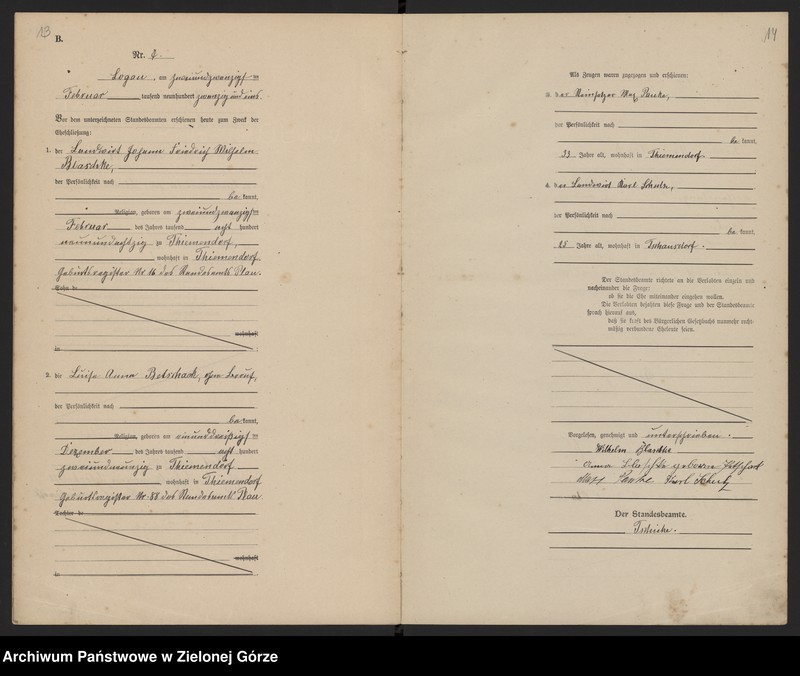 13
B.
Nr.
Logau, am zweiundzwanzigsten
Februar tausend neunhundert zwanzig und eins.
Vor dem unterzeichneten Standesbeamten erschienen heute zum Zweck der
Eheschließung:
1. der Landwirt Johann Friedrich Wilhelm
Blaschke,
der Persönlichkeit nach
be kannt,
Religion, geboren am zweiundzwanzigsten
Februar des Jahres tausend acht hundert
neunundachtzig zu Thiemendorf,
wohnhaft in Thiemendorf.
Geburtsregister Nr 16 des Standesamts Plau.
Sohn de
wohnhaft
in
2. die Luise Anna Betschack, ohne Beruf,
der Persönlichkeit nach
be kannt,
Religion, geboren am einunddreißigsten
Dezember des Jahres tausend acht hundert
zweiundneunzig zu Thiemendorf
wohnhaft in Thiemendorf
Geburtsregister Nr. 88 des Standesamts Plau
Tochter de
wohnhaft
in
14
Als Zeugen waren zugezogen und erschienen:
3. der
der Persönlichkeit nach
be kannt,
33 Jahre alt, wohnhaft in Thiemendorf.
4. der Landwirt Karl Schulz,
der Persönlichkeit nach
be kannt,
25 Jahre alt, wohnhaft in Tschausdorf.
Der Standesbeamte richtete an die Verlobten einzeln und
nacheinander die Frage:
ob sie die Ehe miteinander eingehen wollen.
Die Verlobten bejahten diese Frage und der Standesbeamte
sprach hierauf aus,
daß sie kraft des Bürgerlichen Gesetzbuchs nunmehr recht-
mäßig verbundene Eheleute seien.
Vorgelesen, genehmigt und unterschrieben.
Wilhelm Blaschke
Anna Blaschke geborene
Karl Schulz
Der Standesbeamte.
Archiwum Państwowe w Zielonej Górze